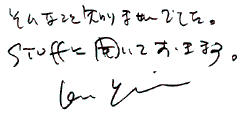 そんなこと知りませんでした。
Stuffに聞いておきます。